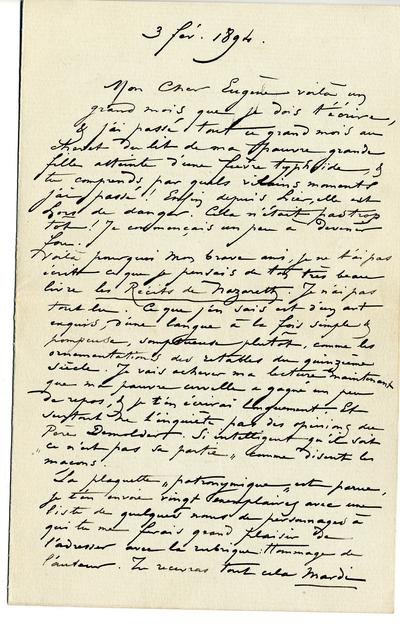 3 fév. 1894.
Mon Cher Eugène voilà un
grand mois que je dois t'écrire,
& j'ai passé tout ce grand mois au
chevet du lit de ma pauvre grande
fille atteinte d'une fièvre typhoïde, &
tu comprends par quels vilains moments
j'ai passé! Enfin depuis hier, elle est
hors de danger. Cela n'était pas trop
tôt! Je commençais un peu à devenir
fou.
Voilà pourquoi mon brave ami, je ne t'ai pas
écrit ce que je pensais de ton très beau
livre les Récits de Nazareth. Je n'ai pas
tout lu. Ce que j'en sais est d'un art
exquis, d'une langue à la fois simple &
pompeuse, somptueuse plutôt, comme les
ornementations des retables du quinzième
siècle. Je vais achever ma lecture maintenant
que ma pauvre cervelle a gagné un peu
de repos, & je t'en écrirai longuement. Et
surtout ne t'inquiète pas des opinions du
Père Demolder. Si intelligent qu'il soit
„ce n'est pas sa partie" comme disent les
maçons.
La plaquette „patronymique" est parue,
je t'en envoie vingt exemplaires avec une
liste de quelques noms de personnages à
qui tu me ferais grand plaisir de
l'adresser avec la rubrique: Hommage de
l'auteur. Tu recevras tout cela Mardi